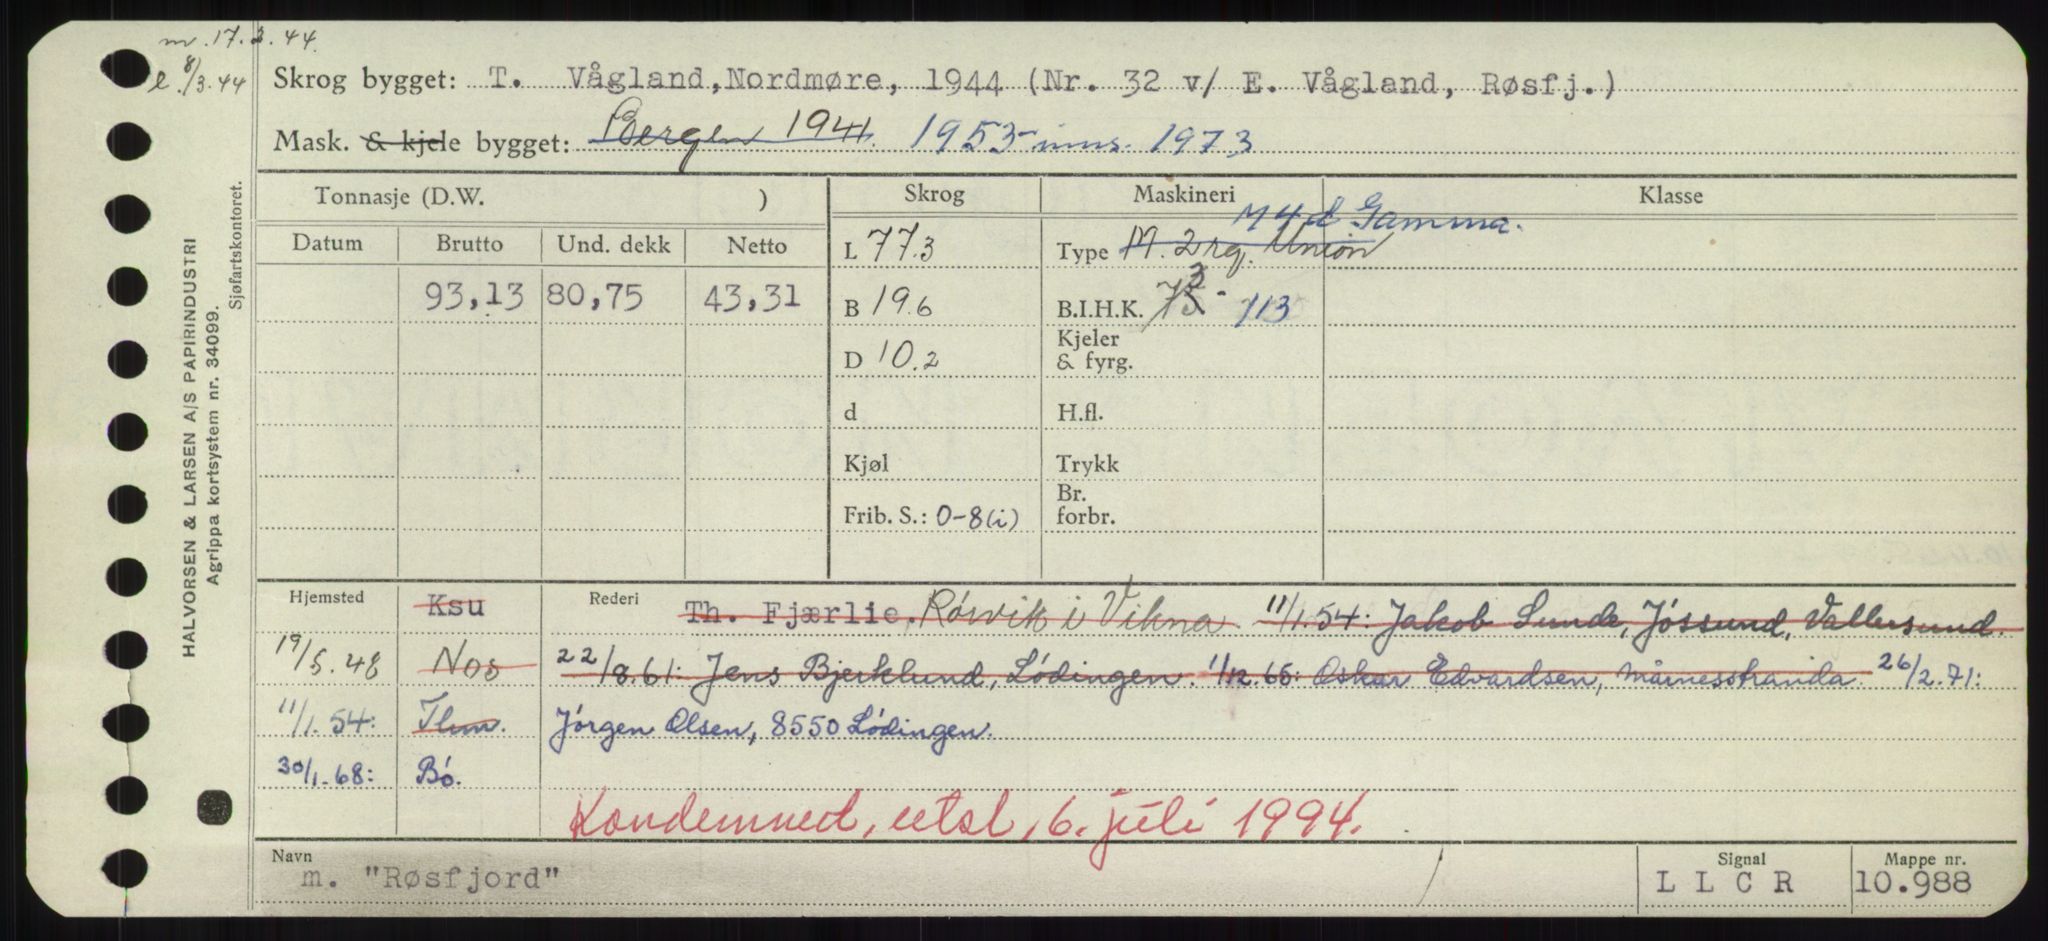 m. 17.3.44.
l. 8/3.44
Skrog bygget: T. Vågland, Nordmøre, 1944 (Nr. 32 v/ E. Vågland, Røsfj.)
Mask. & kjele bygget: Bergen 1941. 1953 inns. 1973
Tonnasje (D.W. ) Skrog Maskineri Klasse
Datum Brutto Und. dekk Netto L 77.3 Type M. 2 rg. Union M 4 d Gamma.
93,13 80,75 43,31 B 19.6 B.I.H.K. 113
Kjeler & fyrg.
D 10.2
d H.fl.
Kjøl Trykk
Br. forbr.
Frib. S.: 0-8(i)
Hjemsted Ksu Rederi Th. Fjærlie. Rórvik i Vikna. 11/1.54: Jakob Sunde, Jóssund, Vallersund.
19/5.48 Nos 22/8.61: Jens Bjerklund, Lódingen. 1/12.65: Oskar Edvardsen, Mårnesstranda. 26/2.71:
11/1.54: Thm. Jórgen Olsen, 8550 Lódingen.
30/1.68: Bó.
Kondemned, utsl, 6. juli 1994.
Navn Signal Mappe nr.
m. "Røsfjord" L L C R 10.988
HALVORSEN & LARSEN A/S PAPIRINDUSTRI
Agrippa kortsystem nr. 34099.
Sjøfartskontoret.